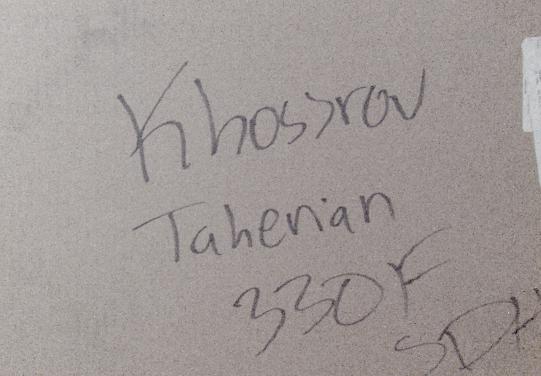 Khossrov
Taherian
330F
SDH